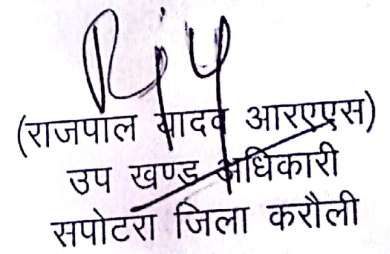 (राजपाल यादव आरएएस)
उप खण्ड अधिकारी
सपोटरा जिला करौली